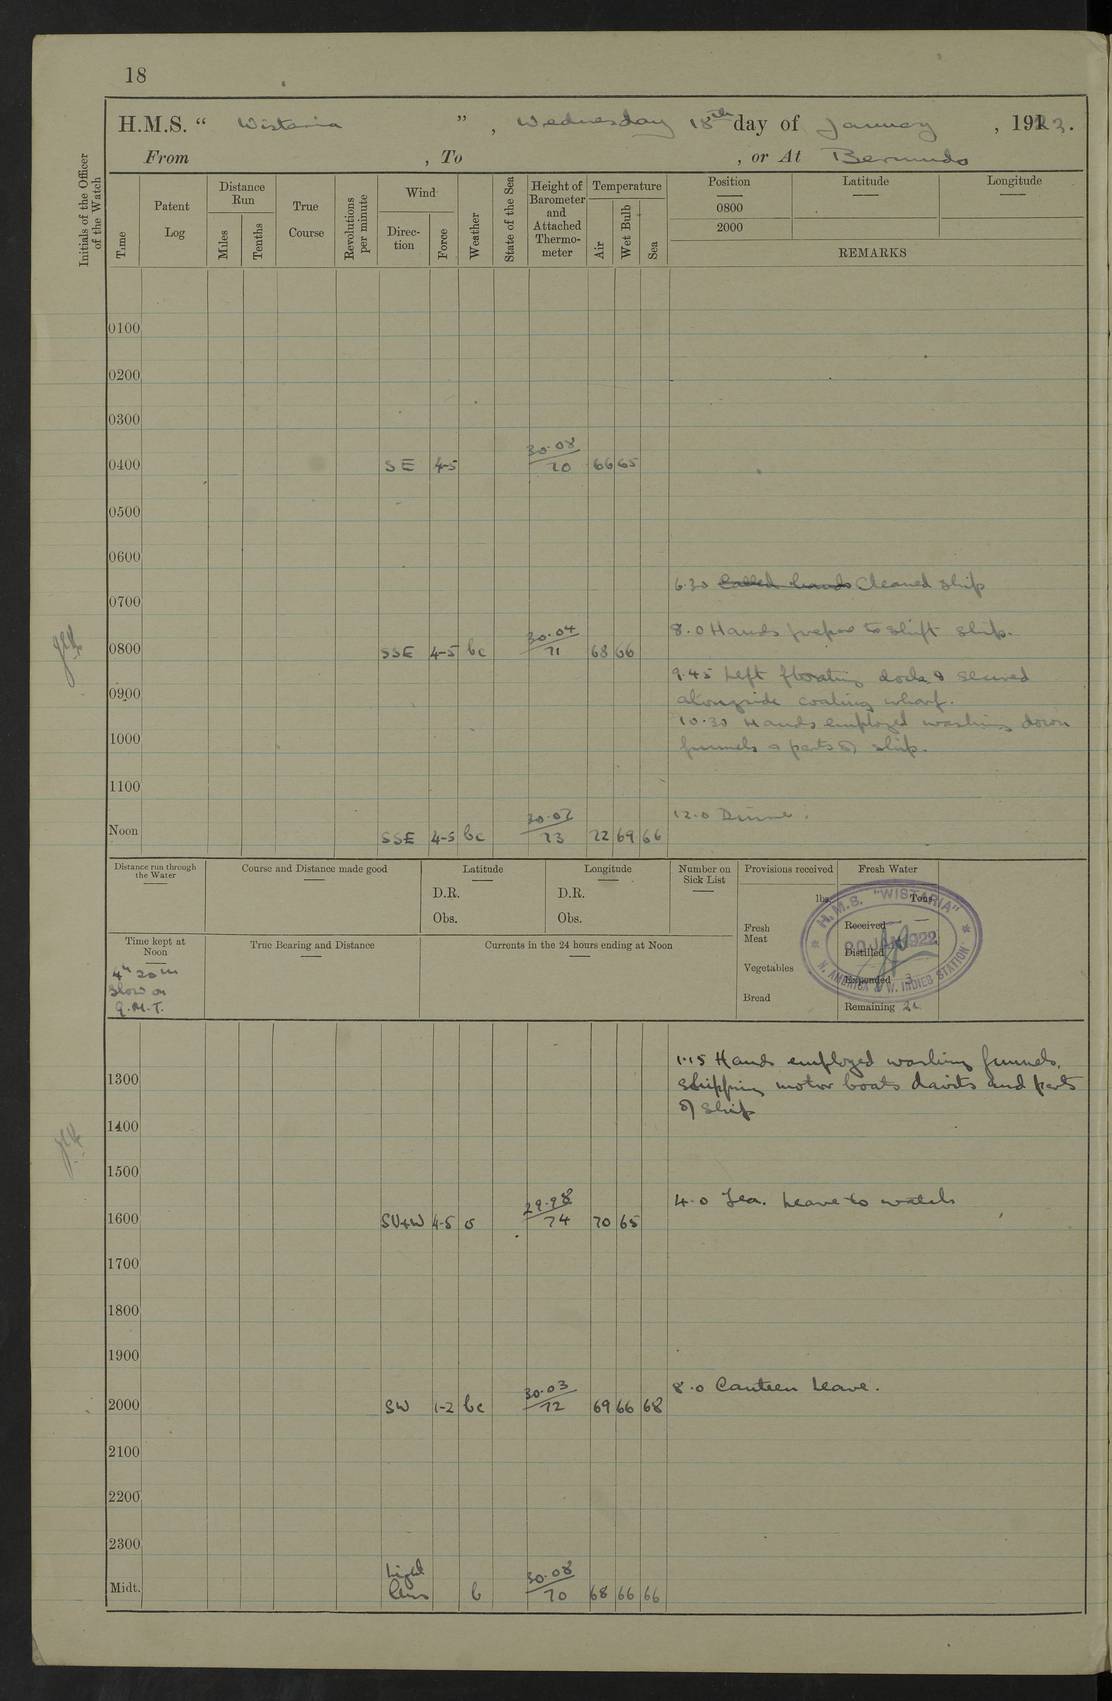 18
H.M.S. “ Wistaria ” , Wednesday 18th day of January , 1923.
From , To , or At Bermuda
Initials of the Officer of the Watch
Time
Patent Log
Distance Run
Miles
Tenths
True Course
Revolutions per minute
Wind
Direc- tion
Force
Weather
State of the Sea
Height of Barometer and Attached Thermo- meter
Temperature
Air
Wet Bulb
Sea
Position Latitude Longitude
0800
2000
REMARKS
0100
0200
0300
0400 SE 4-5 30.08/70 66 65
0500
0600
6.30 Called hands Cleaned ship
0700
8.0 Hands prepare to shift ship.
0800 SSE 4-5 bc 30.04/71 68 66
9.45 Left floating dock & secured
0900 alongside coaling wharf.
10.30 Hands employed washing down
1000 funnels & parts of ship.
1100
12.0 Dinner.
Noon SSE 4-5 bc 30.02/73 72 69 66
Distance run through the Water
Course and Distance made good
Latitude
D.R.
Obs.
Longitude
D.R.
Obs.
Number on Sick List
Provisions received
lbs.
Fresh Meat
Vegetables
Bread
Fresh Water
Tons
Received —
Distilled
Expended 3
Remaining 21
H.M.S. "WISTARIA"
20 JAN 1922
N. AMERICA & W. INDIES STATION
Time kept at Noon
4h 20m
Slow on
G.M.T.
True Bearing and Distance
Currents in the 24 hours ending at Noon
1.15 Hands employed washing funnels,
1300 shipping motor boats davits and parts
of ship
1400
1500
4.0 Tea. Leave to watch
1600 SW 4-5 o 29.98/74 70 65
1700
1800
1900
8.0 Canteen Leave.
2000 SW 1-2 bc 30.03/72 69 66 68
2100
2200
2300
Midt. Light airs b 30.08/70 68 66 66